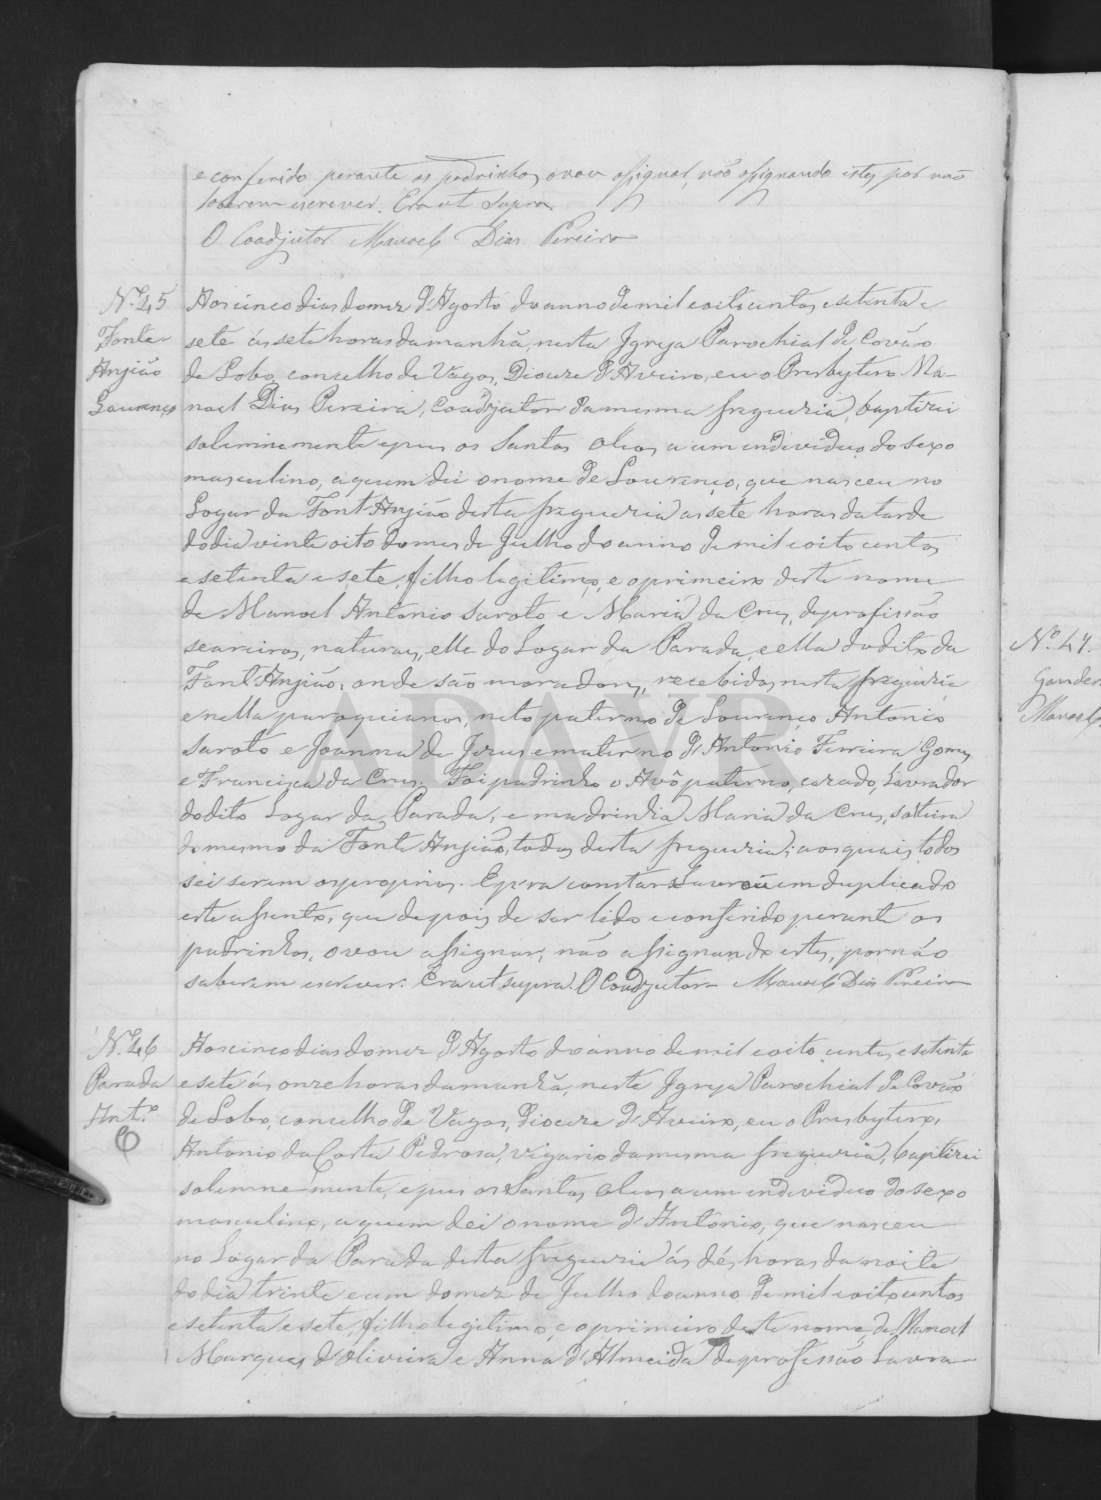 e conferido perante os padrinhos, o vou assignar, não assignando estes por não
saberem escrever. Era ut supra.
O Coadjutor Manoel Dias Pereira
N.º 45
Fonte
Anjião
Lourenço
Aos cinco dias do mez d'Agosto do anno de mil e oito centos, e setenta e
sete ás sete horas da manhã, nesta Igreja Parochial de Covão
de Lobo, concelho de Vagos, Diocese d'Aveiro, eu o Presbytero Ma-
noel Dias Pereira, Coadjutor da mesma freguezia, baptizei
solemnemente e puz os Santos Oleos, a um individuo do sexo
masculino, a quem dei o nome de Lourenço, que nasceu no
Logar da Font'Anjião desta freguezia as sete horas da tarde
do dia vinte oito do mes de Julho do anno de mil e oito centos,
e setenta e sete, filho legitimo, e o primeiro deste nome
de Manoel Antonio Saroto e Maria da Cruz, de profissão
seareiros, naturaes, elle do Logar da Parada, e ella do dito da
Font'Anjião, onde são moradores, recebidos nesta freguezia
e nella paroquianos, neto paterno de Lourenço Antonio
Saroto e Joanna de Jezus e materno d'Antonio Ferreira Gomes
e Francisca da Cruz. Foi padrinho o Avô paterno, cazado, Lavrador
do dito Logar da Parada, e madrinha Maria da Cruz, solteira
do mesmo da Fonte Anjião, todos desta freguezia; aos quais todos
sei serem os proprios. E p.ra constar Lavrou em duplicado
este assento, que depois de ser lido e conferido perante os
padrinhos, o vou assignar, não assignando estes, por não
saberem escrever. Era ut supra. O Coadjutor Manoel Dias Pereira
N.º 46
Parada
Ant.º
6
Aos cinco dias do mez d'Agosto do anno de mil e oito centos, e setenta
e sete ás onze horas da manhã, neste Igreja Parochial de Covão
de Lobo, concelho de Vagos, Diocese d'Aveiro, eu o Presbytero,
Antonio da Costa Pedrosa, vigario da mesma freguezia, baptizei
solemne mente, e puz os Santos Oleos a um individuo do sexo
masculino, a quem dei o nome d'Antonio, que nasceu
no Logar da Parada desta freguezia ás dés horas da noite
do dia trinta e um do mez de Julho do anno de mil e oito centos
e setenta e sete, filho legitimo, e o primeiro deste nome, de Manoel
Marques d'Oliveira e Anna d'Almeida de profissão Lavra-
N.º 47.
Gander
Manoel
ADAVR